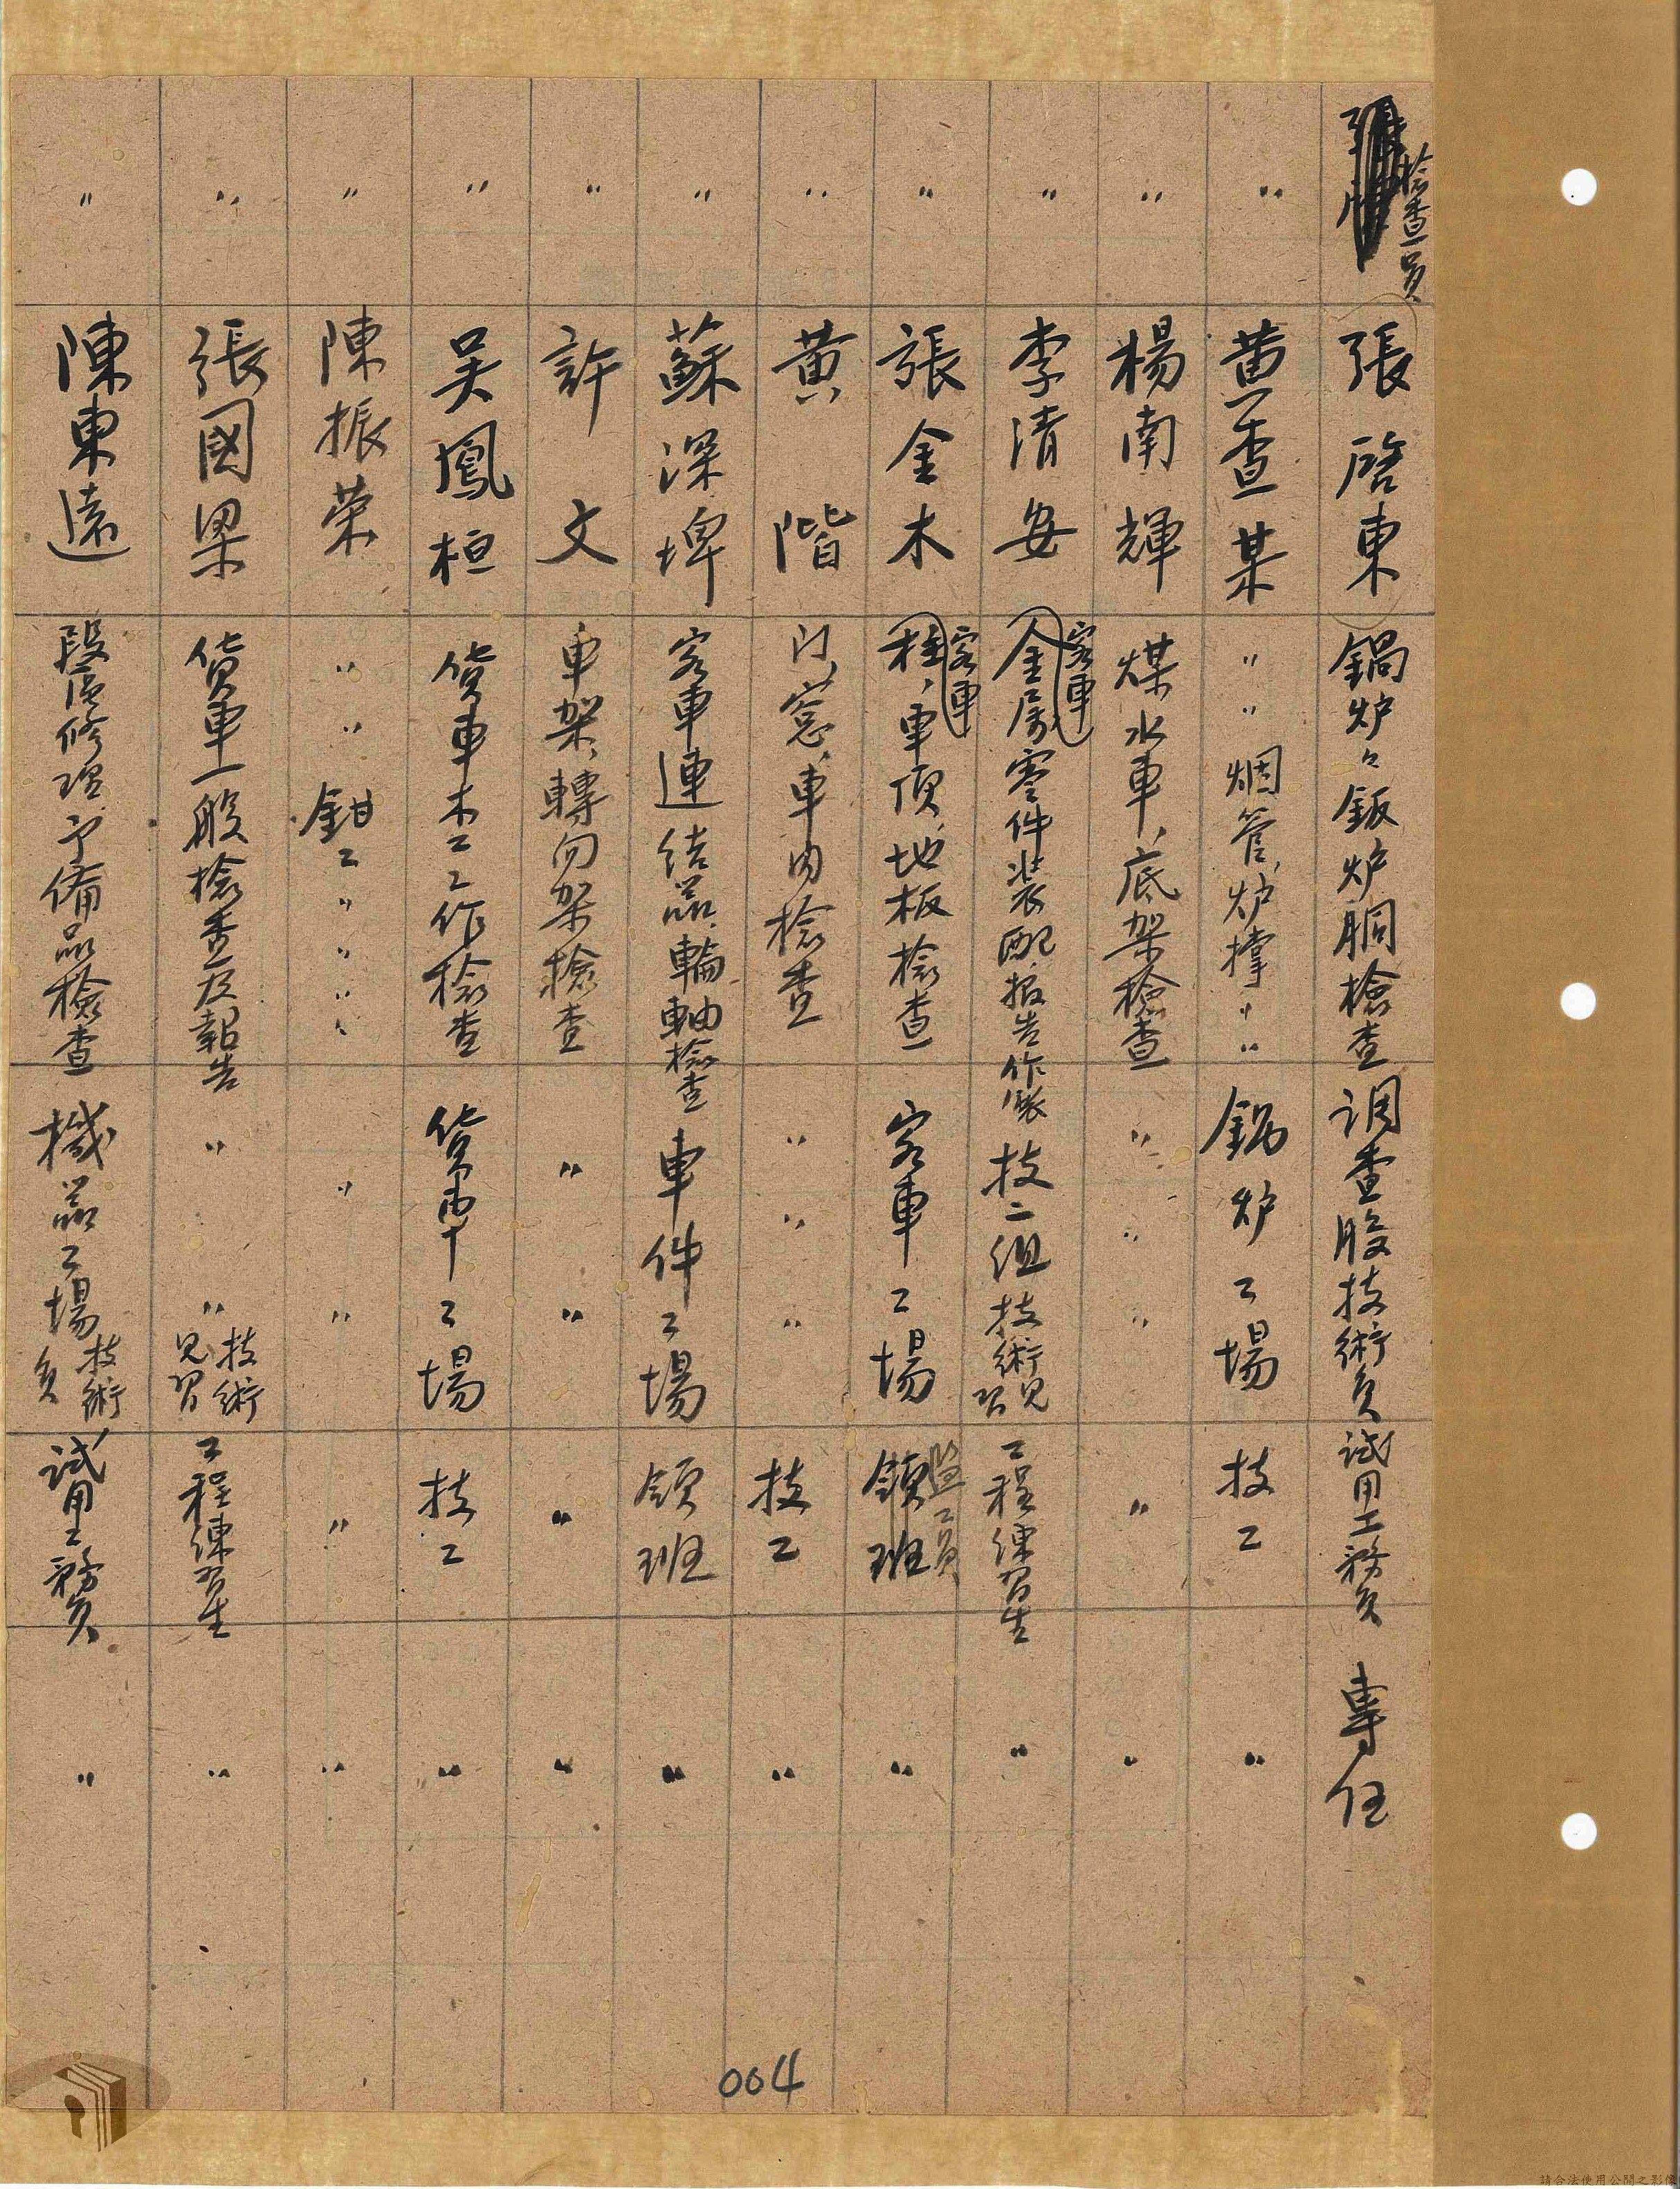 檢查員 張啓東 鍋炉々鈑炉胴檢查 調查股技術員 試用工務員 專任
〃 黄查某 〃 〃 烟管、炉撑 〃 〃 鍋炉工場 技工 〃
〃 楊南輝 煤水車、底架檢查 〃 〃 〃 〃 〃
〃 李清安 客車金属零件裝配、报告作製 技二组技術見習 工程練習生 〃
〃 張金木 客車柱、車頂、地板檢查 客車工場 領班 監工員 〃
〃 黄階 门、窓、車内檢查 〃 〃 〃 技工 〃
〃 蘇深埤 客車連结器、輪軸檢查 車件工場 領班 〃
〃 許文 車架、轉向架檢查 〃 〃 〃 〃
〃 吴鳳桓 货車木工工作檢查 货車工場 技工 〃
〃 陳振荣 〃 〃 鉗工 〃 〃 〃 〃 〃 〃 〃 〃
〃 張國梁 货車一般檢查及報告 〃 〃 技術見習 工程練習生 〃
〃 陳東遠 段修理、予備品檢查 機器工場技術員 試用工務員 〃
004
請合法使用公開之影像